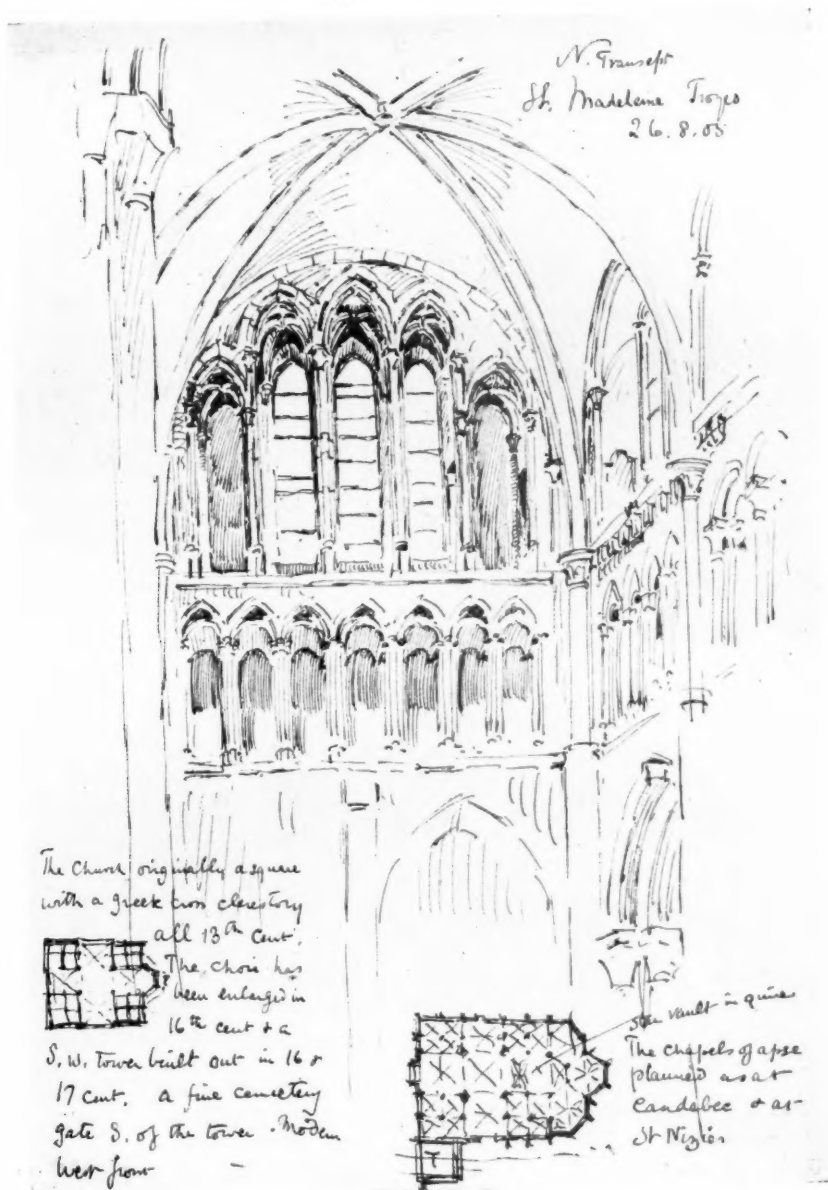 N. Transept
St. Madeleine Troyes
26.8.05
The Church originally a square
with a greek cross clerestory
all 13th cent.
The choir has
been enlarged in
16th cent & a
S.W. Tower built out in 16 &
17 cent. a fine cemetery
gate S. of the tower. Modern
West front
T
vault in
The chapels of apse
planned as at
Caudebec & at
St Nizier